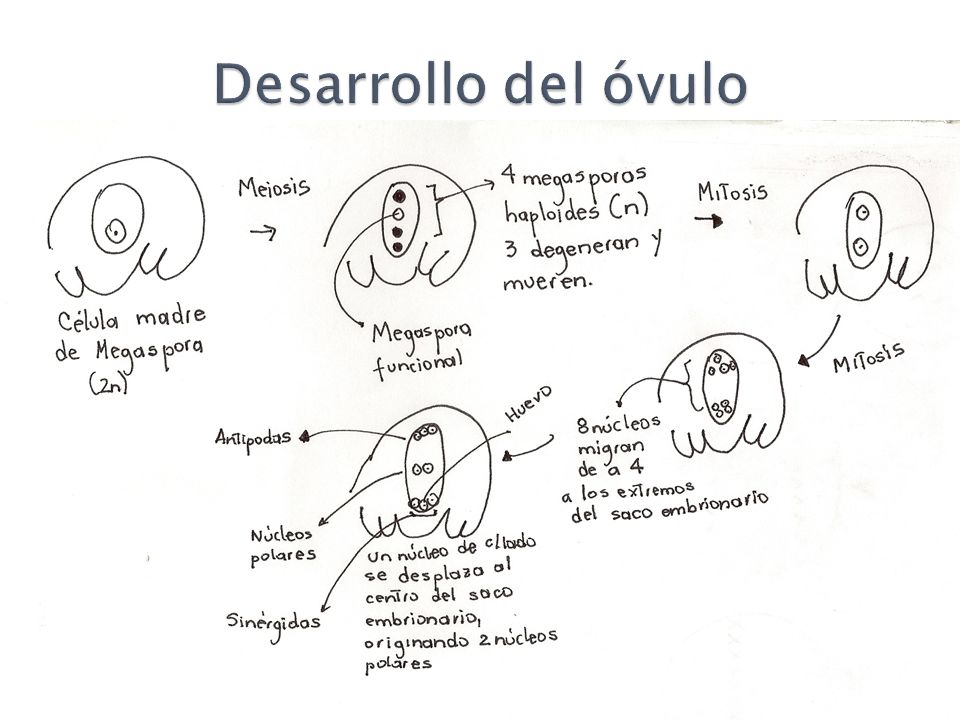 Desarrollo del óvulo
Meiosis
4 megasporas
haploides (n)
3 degeneran y
mueren.
Mitosis
Célula madre
de Megaspora
(2n)
Megaspora
funcional
Mitosis
8 núcleos
migran
de a 4
a los extremos
del saco embrionario
Huevo
Antípodas
Núcleos
polares
Sinérgidas
un núcleo de c/lado
se desplaza al
centro del saco
embrionario,
originando 2 núcleos
polares